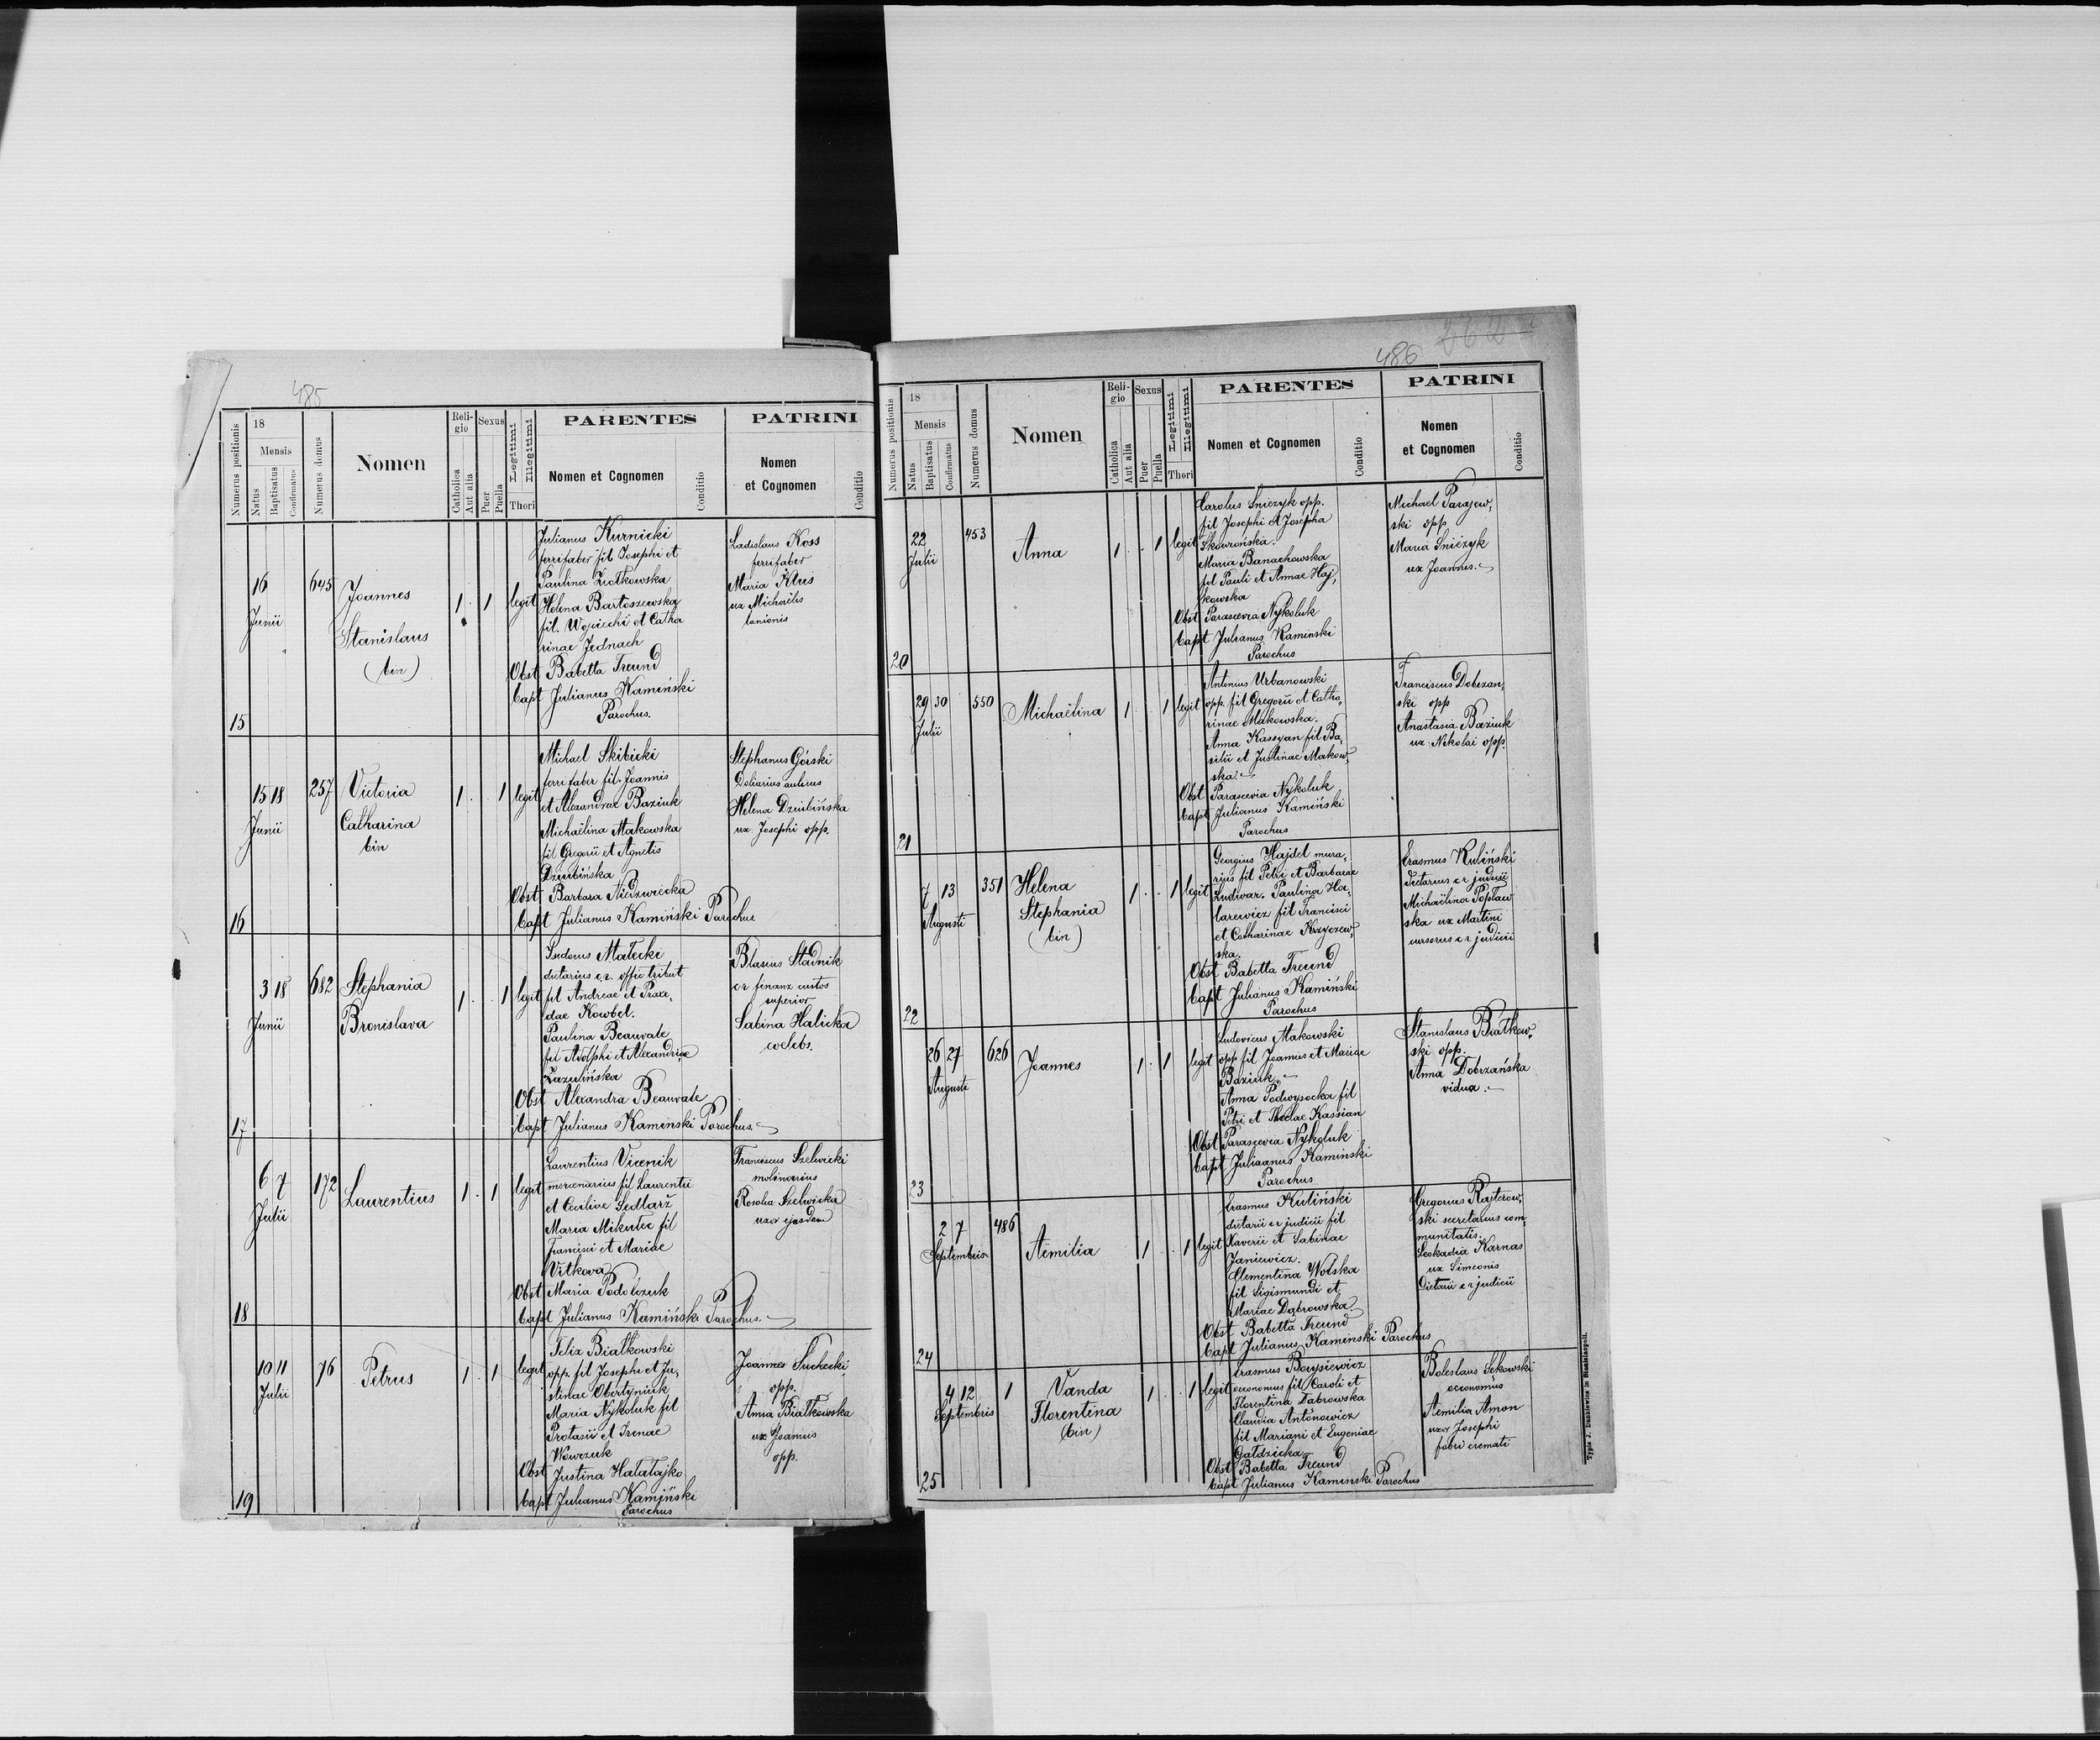 485
Numerus positionis
18
Mensis
Natus
Baptisatus
Confirmatus
Numerus domus
Nomen
Reli-
gio
Catholica
Aut alia
Sexus
Puer
Puella
Legitimi
Illegitimi
Thori
PARENTES
Nomen et Cognomen
Conditio
PATRINI
Nomen
et Cognomen
Conditio
15
16
Junii
645
Joannes
Stanislaus
(bin)
1 . 1
legit
Julianus Kurnicki
ferrifaber fil Josephi et
Paulina Ziotkowska
Helena Bartoszewska
fil. Wojciechi et Catha
rinae Jednach
Obst Babetta Freund
Bapt Julianus Kamiński
Parochus.
Ladislaus Koss
ferrifaber
Maria Klus
ux Michaëlis
lanionis
16
15 18
Junii
257
Victoria
Catharina
bin
1 . 1
legit
Michael Skibicki
ferrifaber fil. Joannis
et Alexandrae Baziuk
Michaëlina Makowska
fil Gregorii et Agnetis
Dziubińska
Obst Barbara Niedzwiecka
Bapt Julianus Kamiński Parochus
Stephanus Górski
Doliarius
Helena Dziubińska
ux. Josephi opp.
17
3 18
Junii
682
Stephania
Bronislava
1 . 1
legit
Ludovus Małecki
dietarius c r. offic tribut
fil Andreae et Praxe-
dae Kowbel.
Paulina Beauvale
fil Adolphi et Alexandrae
Zazulińska
Obst Alexandra Beauvale
Bapt Julianus Kaminski Parochus.
Blasius Stadnik
cr finanz custos
superior
Sabina Halicka
coelebs.
18
6 7
Julii
172
Laurentius
1 . 1
legit
Laurentius Vicenik
mercenarius fil Laurentii
et Ceciliae Sedlarž
Maria Mikulec fil
Francisci et Mariae
Vitkova
Obst Maria Podolczuk
Bapt Julianus Kamiński Parochus.
Franciscus Szelwicki
molinarius
Rosolia Szelwicka
uxor ejusdem
19
10 11
Julii
76
Petrus
1 . 1
legit
Felix Białkowski
opp. fil Josephi et Ju-
stinae Obertyniuk
Maria Nykoluk fil
Protasii et Irenae
Wowczuk
Obst Justina Hałałajko
Bapt Julianus Kamiński
Parochus
Joannes Suchecki
opp.
Anna Białkowska
ux Joannis
opp.
486
Numerus positionis
18
Mensis
Natus
Baptisatus
Confirmatus
Numerus domus
Nomen
Reli-
gio
Catholica
Aut alia
Sexus
Puer
Puella
Legitimi
Illegitimi
Thori
PARENTES
Nomen et Cognomen
Conditio
PATRINI
Nomen
et Cognomen
Conditio
20
22
Julii
453
Anna
1 . 1
legit
Carolus Sniezyk opp.
fil Josephi et Josepha
Skowrońska.
Maria Banachowska
fil Pauli et Annae Haj-
kowska
Obst Parascevia Nykoluk
Bapt Julianus Kaminski
Parochus
Michael Parajew-
ski opp
Maria Sniezyk
ux Joannis.
21
29 30
Julii
550
Michaëlina
1 1
legit
Antonius Urbanowski
opp. fil Gregorii et Catha-
rinae Makowska.
Anna Kassyan fil Ba-
silii et Justinae Makow-
ska.
Obst Parascevia Nykoluk
Bapt Julianus Kamiński
Parochus
Franciscus Dobrzan-
ski opp
Anastasia Baziuk
ux Nikolai opp.
22
7 13
Augusti
351
Helena
Stephania
(bin)
1 . . 1
legit
Georgius Hajdel mura-
rius fil Petri et Barbarae
Ludivar. Paulina Hor-
larewicz fil Francisci
et Catharinae Krzyczew-
ska.
Obst Babetta Freund
Bapt Julianus Kamiński
Parochus
Erasmus Kuliński
dietarius c r judicii
Michaëlina Popław
ska ux Martini
cursorus c r judicii
23
26 27
Augusti
626
Joannes
1 . 1
legit
Ludovicus Makowski
opp fil Joannis et Mariae
Baziuk.
Anna Podwysocka fil
Petri et Theclae Kassian
Obst Parascevia Nykoluk
Bapt Juliaanus Kamiński
Parochus
Stanislaus Białkow-
ski opp.
Anna Dobrzańska
vidua.
24
2 7
Septembris
486
Aemilia
1 . 1
legit
Erasmus Kuliński
dietarii c r judicii fil
Xaverii et Sabinae
Janiewicz.
Clementina Wolska
fil Sigismundi et
Mariae Dąbrowska
Obst Babetta Freund
Bapt Julianus Kaminski Parochus
Gregorius Rajterow-
ski secretarius com-
munitatis.
Leokadia Karnas
ux Simeonis
Dietarii c r judicii
25
4 12
Septembris
1
Vanda
Florentina
(bin)
1 . 1
legit
Erasmus Borysiewicz
oeconomus fil Caroli et
Florentina Dabrowska
Claudia Antonowicz
fil Mariani et Eugeniae
Gałdzicka
Obst Babetta Freund
Bapt Julianus Kaminski Parochus
Boleslaus Sękowski
oeconomus
Aemilia Amon
uxor Josephi
fabri cremati
Typis J. Dankiewicz in Stanislaopoli.